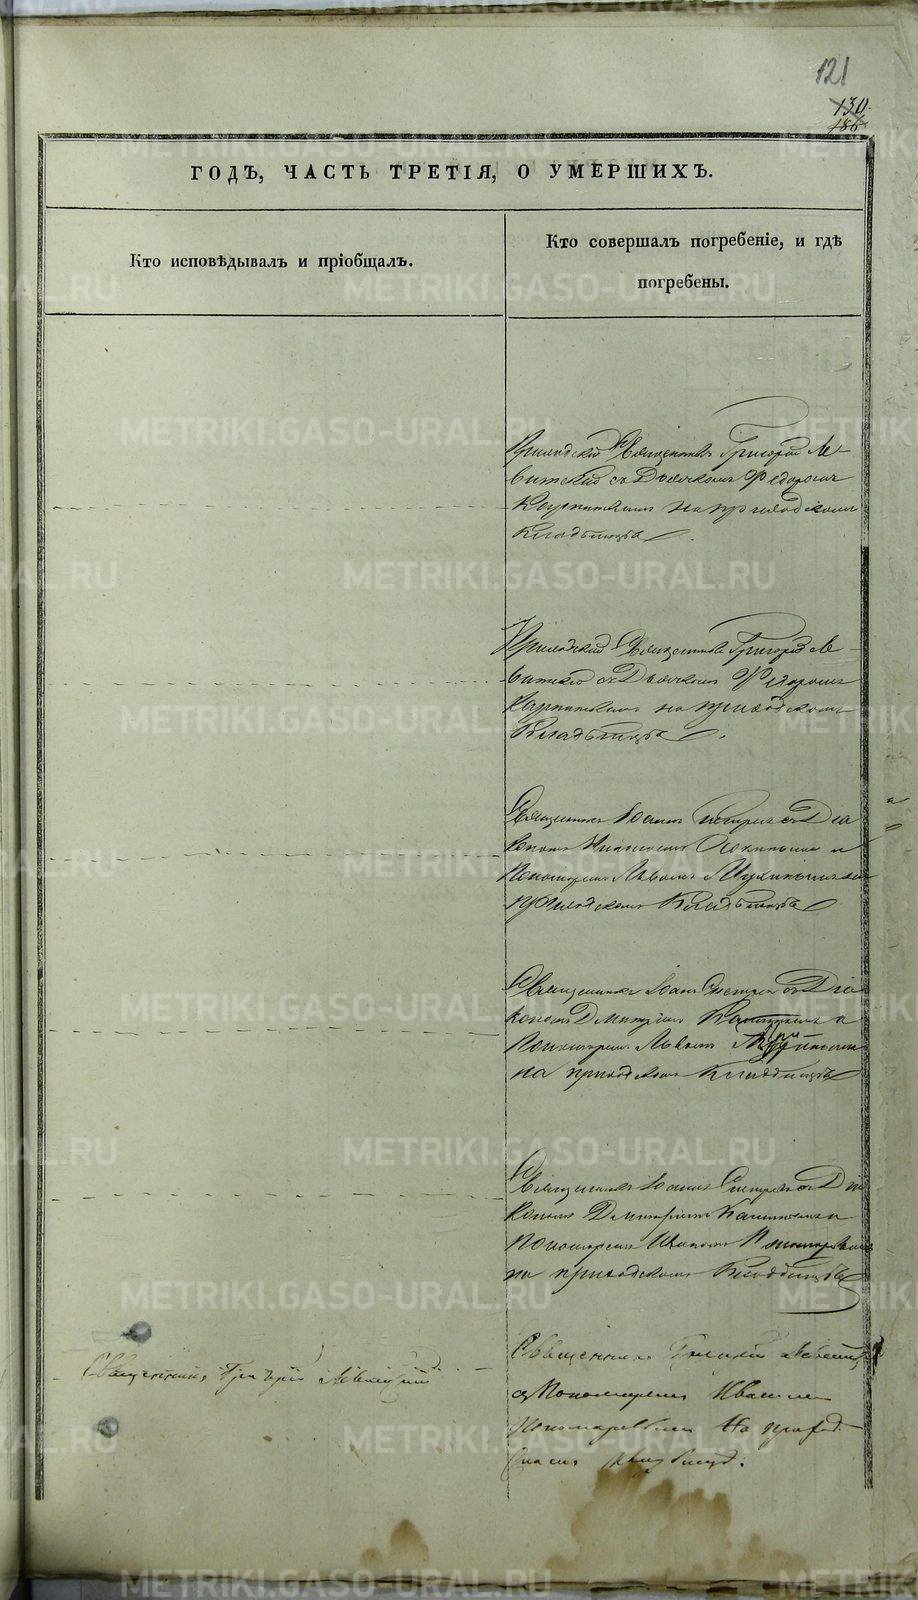 121
130.
186
ГОДЪ, ЧАСТЬ ТРЕТІЯ, О УМЕРШИХЪ.
Кто исповѣдывалъ и пріобщалъ.
Кто совершалъ погребеніе, и гдѣ
погребены.
Приходскій Священникъ Григорій Ле-
витскій съ Дьячкомъ Ѳедоромъ
на приходскомъ
Кладбищѣ.
Приходскій Священникъ Григорій Ле-
витскій съ Дьячкомъ Ѳедоромъ
на приходскомъ
Кладбищѣ.
Священникъ Іоаннъ съ Діа
кономъ и
Пономаремъ Львомъ на
приходскомъ Кладбищѣ
Священникъ Іоаннъ съ Діа
кономъ Димитріемъ и
Пономаремъ Львомъ
на приходскомъ Кладбищѣ
Священникъ Іоаннъ съ Діа
кономъ Димитріемъ и
Пономаремъ Иваномъ Пономаревымъ
на приходскомъ Кладбищѣ
Священникъ Григорій Левитскій
Священникъ Григорій Левитскій
съ Пономаремъ Иваномъ
Пономаревымъ На приход-
скомъ кладбищѣ.
METRIKI.GASO-URAL.RU